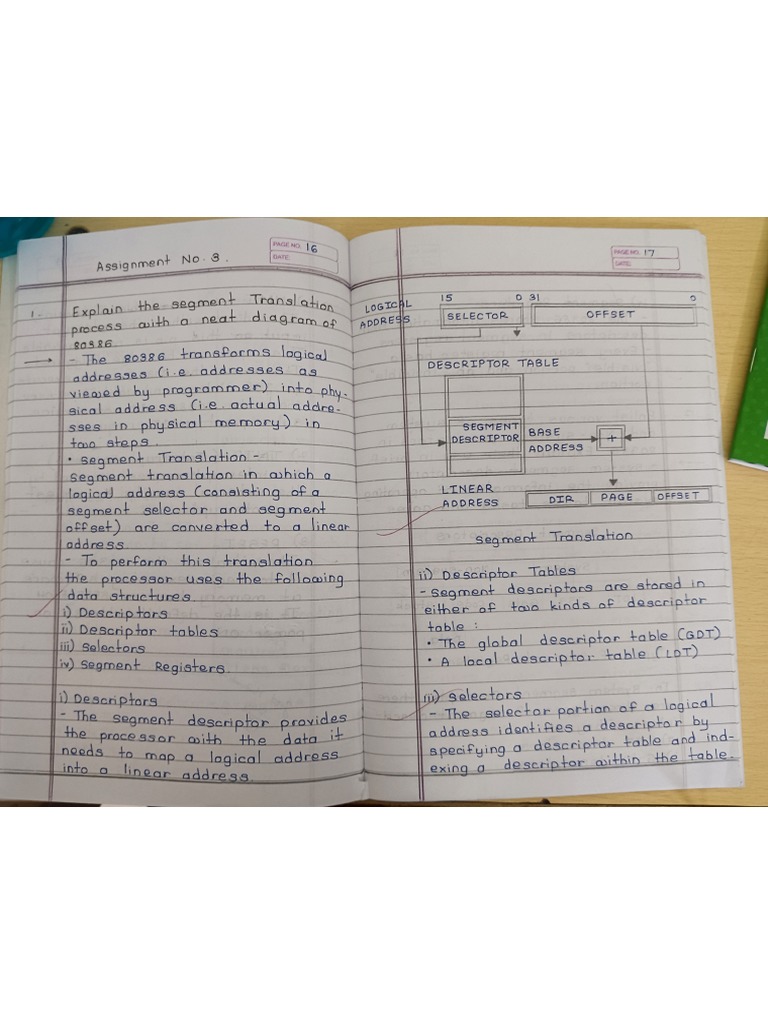 PAGE NO. 16
DATE:
Assignment No. 3.
1. Explain the segment Translation
process with a neat diagram of
80386.
→ - The 80386 transforms logical
addresses (i.e. addresses as
viewed by programmer) into phy-
sical address (i.e. actual addre-
sses in physical memory) in
two steps.
• Segment Translation -
segment translation in which a
logical address (consisting of a
segment selector and segment
offset) are converted to a linear
address.
- To perform this translation
the processor uses the following
data structures.
i) Descriptors
ii) Descriptor tables
iii) Selectors
iv) Segment Registers.
i) Descriptors
- The segment descriptor provides
the processor with the data it
needs to map a logical address
into a linear address.
PAGE NO. 17
DATE:
15 0 31 0
LOGICAL
ADDRESS
SELECTOR OFFSET
DESCRIPTOR TABLE
SEGMENT
DESCRIPTOR
BASE
ADDRESS
+
LINEAR
ADDRESS
DIR PAGE OFFSET
Segment Translation
ii) Descriptor Tables
- Segment descriptors are stored in
either of two kinds of descriptor
table :
• The global descriptor table (GDT)
• A local descriptor table (LDT)
iii) Selectors
- The selector portion of a logical
address identifies a descriptor by
specifying a descriptor table and ind-
exing a descriptor within the table.